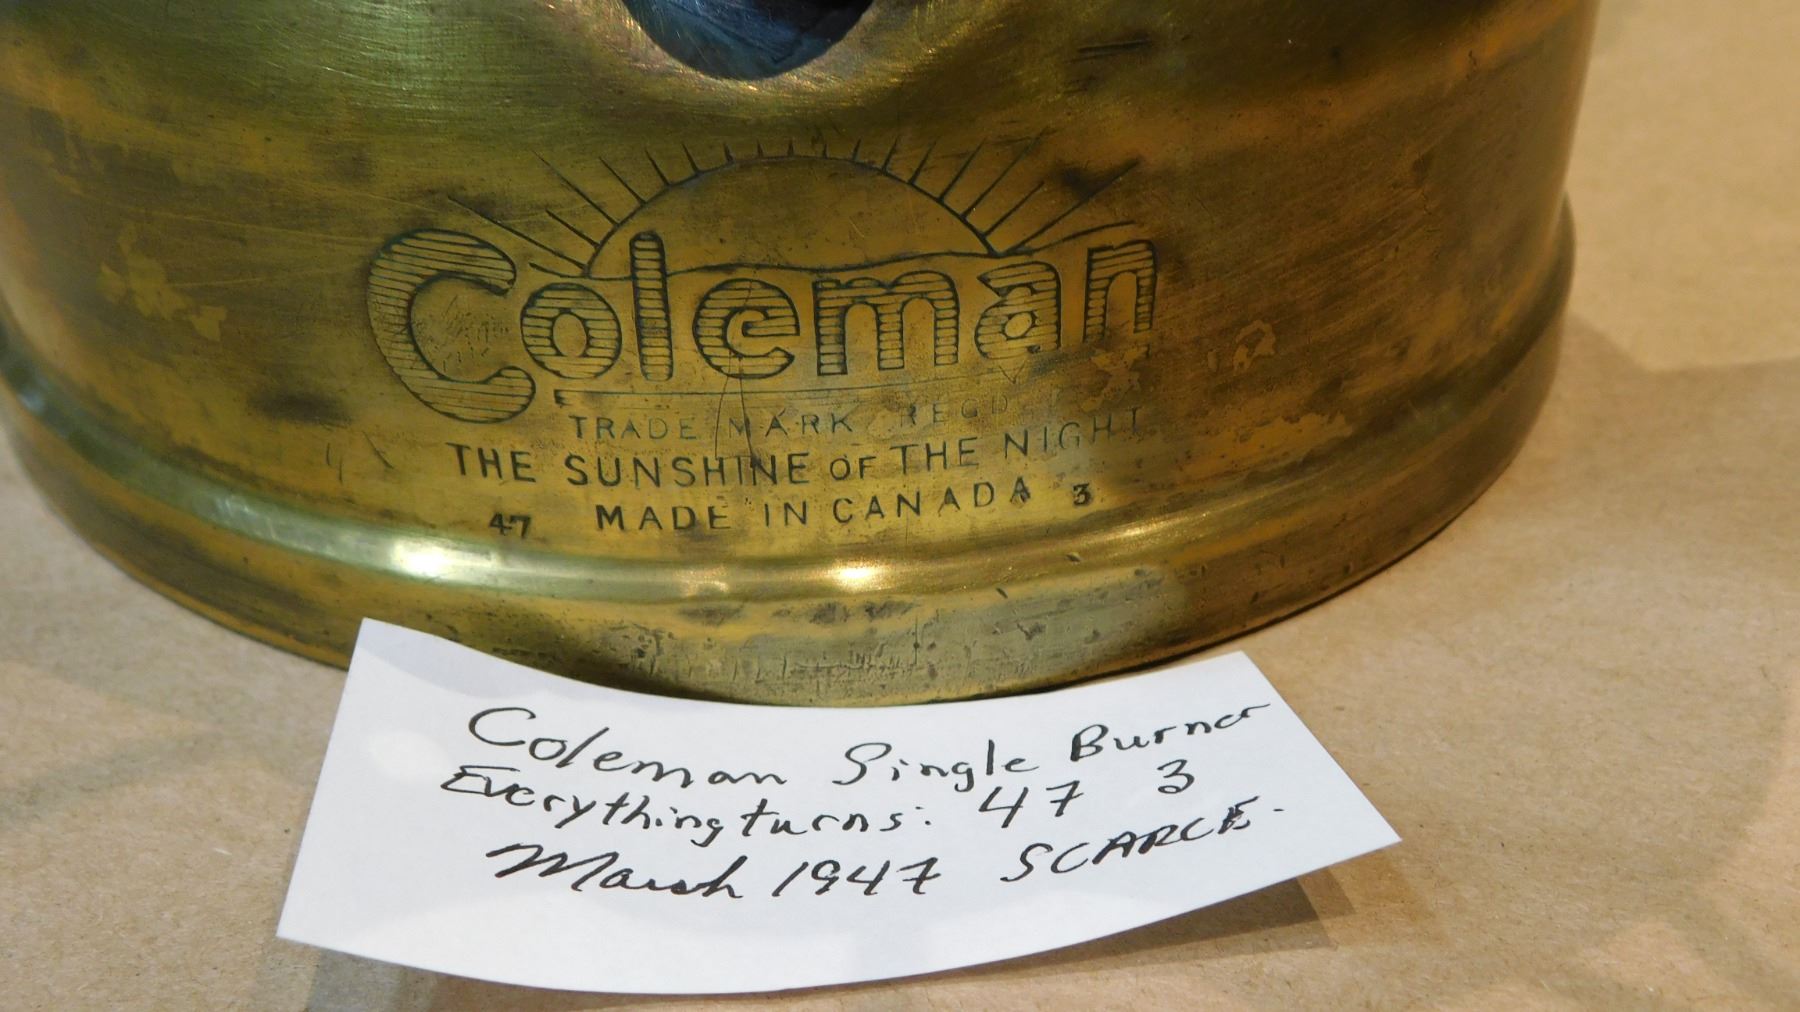 Coleman
TRADE MARK REGD
THE SUNSHINE OF THE NIGHT
47 MADE IN CANADA 3
Coleman Single Burner
Everything turns: 47 3
March 1947 SCARCE.